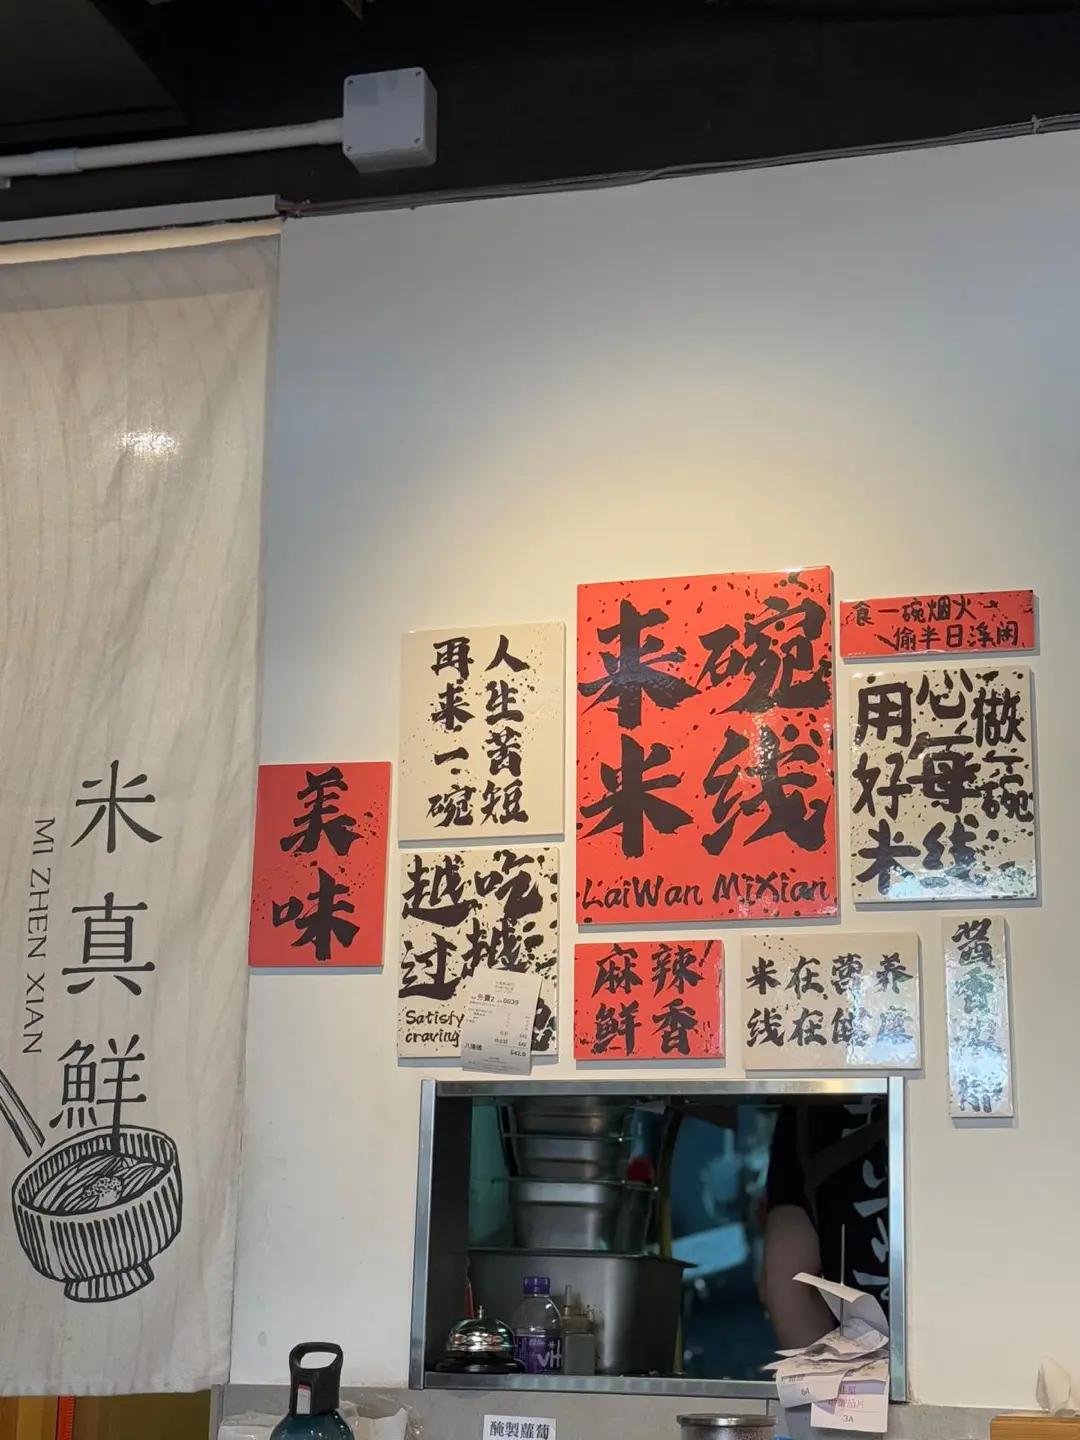 米真鮮
MI ZHEN XIAN
美味
人生苦短
再来一碗
吃越
越过
Satisfy
craving
来碗
米线
LaiWan MiXian
食一碗烟火
偷半日浮闲
用心做
好每碗
米线
麻辣
鲜香
米在营养
线在健康
酱香浓郁
外賣2
0039
八珍
$42.0
醃製蘿蔔
6A
3A